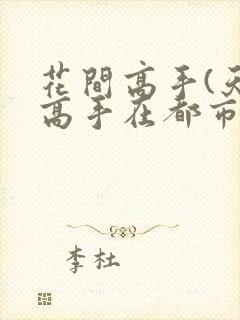 花間高手(天
高手在都市
李杜